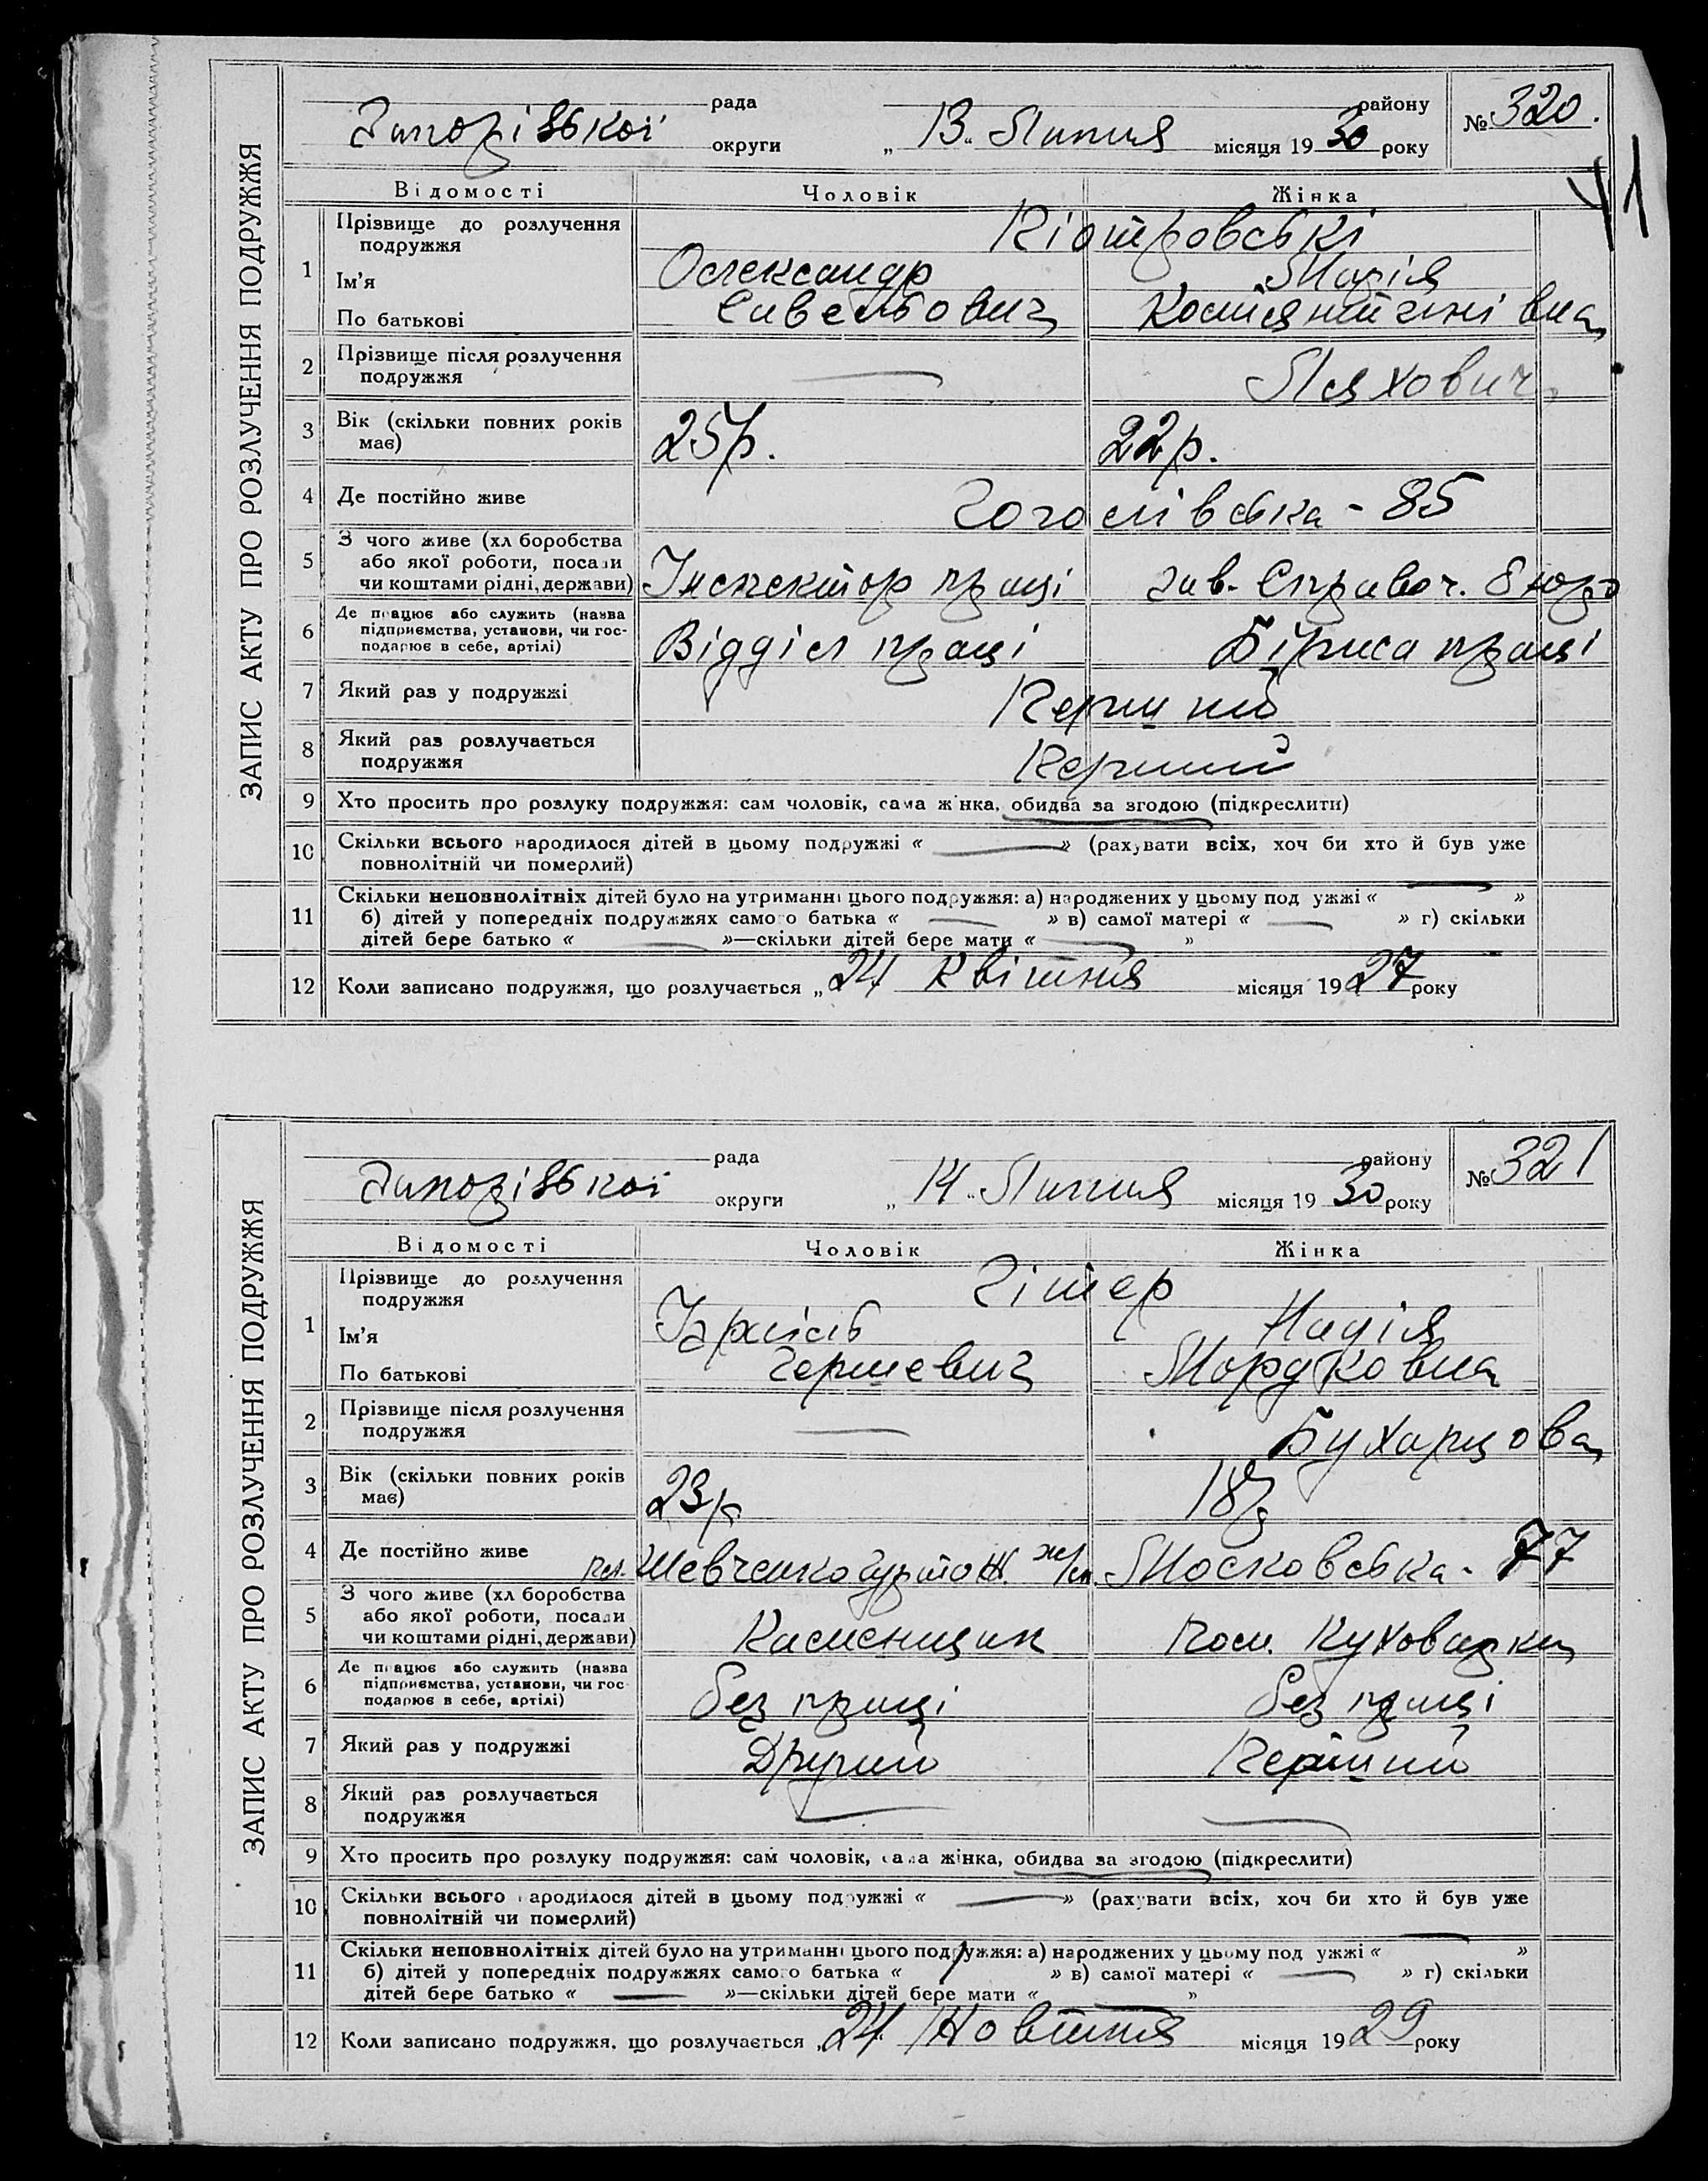 ЗАПИС АКТУ ПРО РОЗЛУЧЕННЯ ПОДРУЖЖЯ
рада району
Запорізької округи „13“ Липня місяця 1930 року
№ 320.
41
Відомості Чоловік Жінка
1 Прізвище до розлучення подружжя Піотровські
Ім'я Олександр Марія
По батькові Савельович Костянтинівна
2 Прізвище після розлучення подружжя — Ляхович
3 Вік (скільки повних років має) 25р. 22р.
4 Де постійно живе Гоголівська - 85
5 З чого живе (хл боробства або якої роботи, посади чи коштами рідні, держави) Інспектор праці зав. Справоч. бюро
6 Де працює або служить (назва підприємства, установи, чи господарює в себе, артілі) Відділ праці Біржа праці
7 Який раз у подружжі Перший
8 Який раз розлучається подружжя Перший
9 Хто просить про розлуку подружжя: сам чоловік, сама жінка, обидва за згодою (підкреслити)
10 Скільки всього народилося дітей в цьому подружжі « — » (рахувати всіх, хоч би хто й був уже
повнолітній чи померлий)
11 Скільки неповнолітніх дітей було на утриманні цього подружжя: а) народжених у цьому под ужжі « — »
б) дітей у попередніх подружжях самого батька « — » в) самої матері « — » г) скільки
дітей бере батько « — »—скільки дітей бере мати « — »
12 Коли записано подружжя, що розлучається „24 Квітня місяця 1927 року
ЗАПИС АКТУ ПРО РОЗЛУЧЕННЯ ПОДРУЖЖЯ
рада району
Запорізької округи „14“ Липня місяця 1930 року
№ 321
Відомості Чоловік Жінка
1 Прізвище до розлучення подружжя Гітер
Ім'я Ізраїль Надія
По батькові Гершевич Мордковна
2 Прізвище після розлучення подружжя — Бухарцова
3 Вік (скільки повних років має) 23р 18р
4 Де постійно живе пл. Шевченко гуртож. Московська - 77
5 З чого живе (хл боробства або якої роботи, посади чи коштами рідні, держави) Каменщик Пом. Куховарки
6 Де працює або служить (назва підприємства, установи, чи гос- подарює в себе, артілі) без праці без праці
7 Який раз у подружжі Другий Перший
8 Який раз розлучається подружжя — —
9 Хто просить про розлуку подружжя: сам чоловік, сама жінка, обидва за згодою (підкреслити)
10 Скільки всього народилося дітей в цьому подружжі « — » (рахувати всіх, хоч би хто й був уже
повнолітній чи померлий)
11 Скільки неповнолітніх дітей було на утриманні цього подружжя: а) народжених у цьому под ужжі « — »
б) дітей у попередніх подружжях самого батька « 1 » в) самої матері « — » г) скільки
дітей бере батько « — »—скільки дітей бере мати « — »
12 Коли записано подружжя, що розлучається „24 Жовтня місяця 1929 року